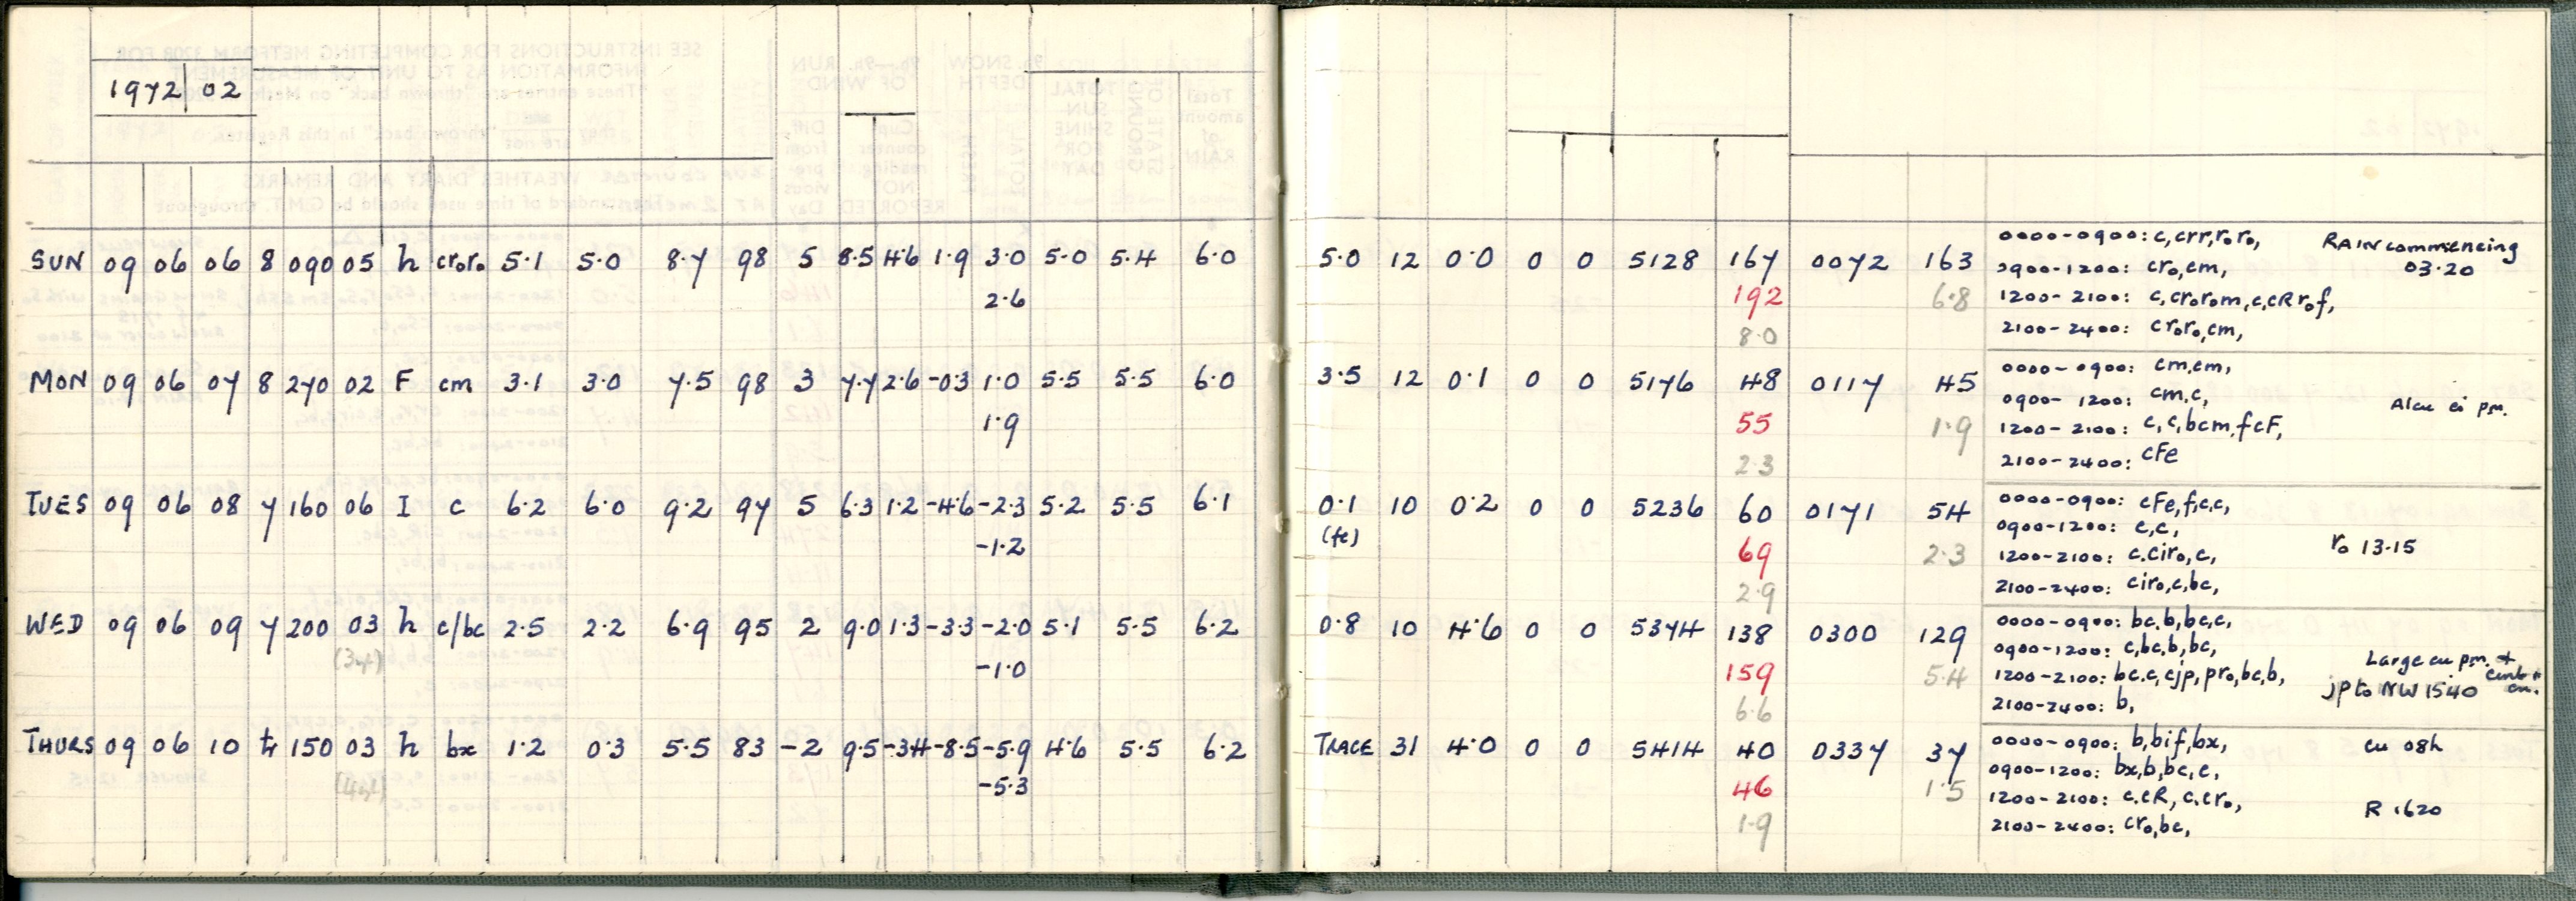 1972 02
SUN 09 06 06 8 090 05 h cr₀r₀ 5.1 5.0 8.7 98 5 8.5 4.6 1.9 3.0 5.0 5.4 6.0 5.0 12 0.0 0 0 5128 167 0072 163 0000-0900: c,crr,r₀r₀, RAIN commencing
03.20
0900-1200: cr₀,cm,
2.6 192 6.8 1200-2100: c,cr₀r₀m,c,cRr₀f,
8.0 2100-2400: cr₀r₀,cm,
MON 09 06 07 8 270 02 F cm 3.1 3.0 7.5 98 3 7.7 2.6 -0.3 1.0 5.5 5.5 6.0 3.5 12 0.1 0 0 5176 48 0117 45 0000-0900: cm,cm,
0900-1200: cm,c, Alcu ci pm.
1.9 55 1.9 1200-2100: c,c,bcm,fcF,
2.3 2100-2400: cFe
TUES 09 06 08 7 160 06 I c 6.2 6.0 9.2 97 5 6.3 1.2 -4.6 -2.3 5.2 5.5 6.1 0.1 10 0.2 0 0 5236 60 0171 54 0000-0900: cFe,f,c,c,
(fe) 0900-1200: c,c,
-1.2 69 2.3 1200-2100: c,cir₀,c, r₀ 13.15
2.9 2100-2400: cir₀,c,bc,
WED 09 06 09 7 200 03 h c/bc 2.5 2.2 6.9 95 2 9.0 1.3 -3.3 -2.0 5.1 5.5 6.2 0.8 10 4.6 0 0 5374 138 0300 129 0000-0900: bc,b,bc,c,
0900-1200: c,bc,b,bc, Large cu pm. +
-1.0 159 5.4 1200-2100: bc,c,cjp,pr₀,bc,b, jp to NW 1540
6.6 2100-2400: b,
THURS 09 06 10 150 03 h bx 1.2 0.3 5.5 83 -2 9.5 -3.4 -8.5 -5.9 4.6 5.5 6.2 TRACE 31 4.0 0 0 5414 40 0337 37 0000-0900: b,bif,bx, cu 08h
0900-1200: bx,b,bc,c,
-5.3 46 1.5 1200-2100: c,cR,c,cr₀, R 1620
1.9 2100-2400: cr₀,bc,